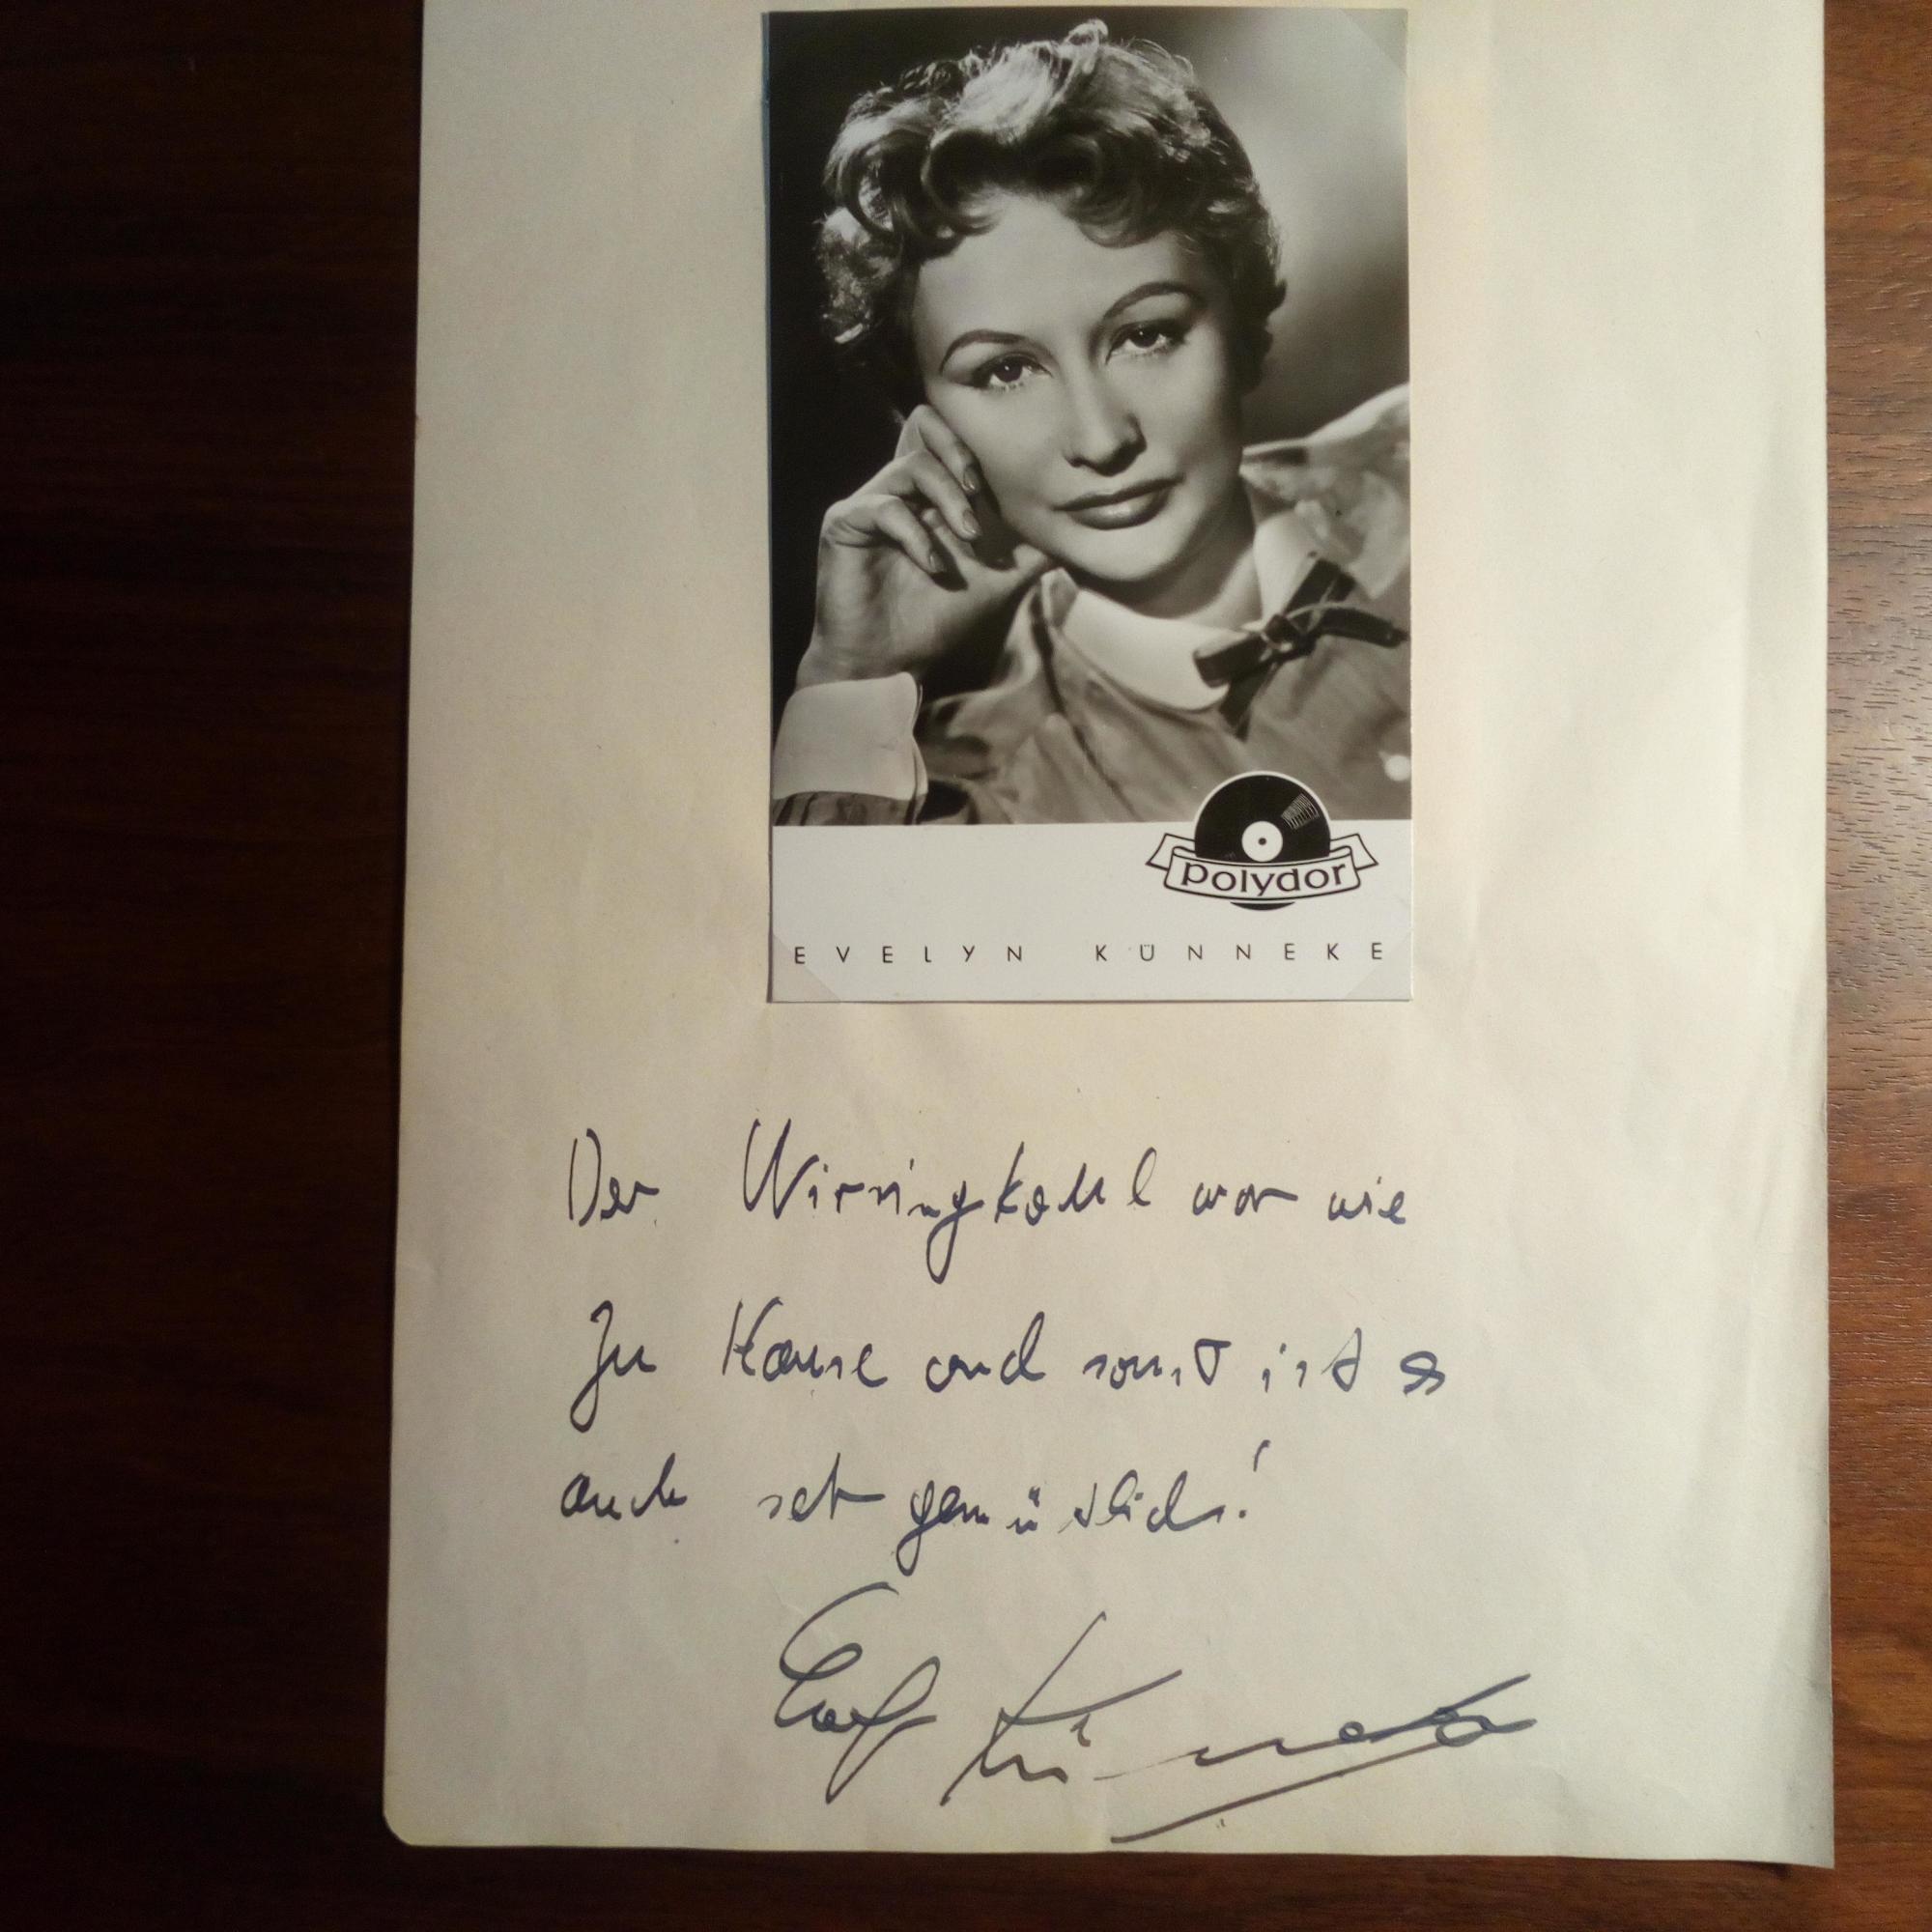 polydor
EVELYN KÜNNEKE
Der Wirsingkohl war wie
zu Hause und sonst ist es
auch sehr gemütlich!
Evelyn Künneke